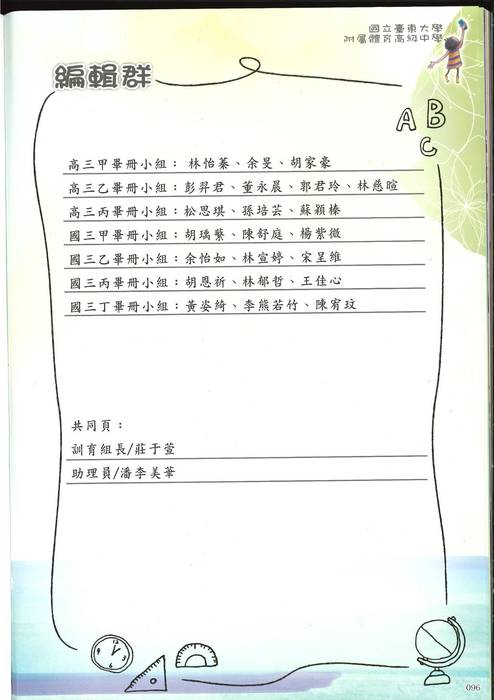 國立臺東大學
附屬體育高級中學
編輯群
A B
C
高三甲畢冊小組：林怡蓁、余旻、胡家豪
高三乙畢冊小組：彭羿君、董永晨、郭君玲、林慈暄
高三丙畢冊小組：松思琪、孫培芸、蘇穎榛
國三甲畢冊小組：胡瑀繁、陳舒庭、楊紫微
國三乙畢冊小組：余怡如、林宣婷、宋呈維
國三丙畢冊小組：胡恩祈、林郁哲、王佳心
國三丁畢冊小組：黃姿綺、李熊若竹、陳宥玟
共同頁：
訓育組長/莊于萱
助理員/潘李美華
096